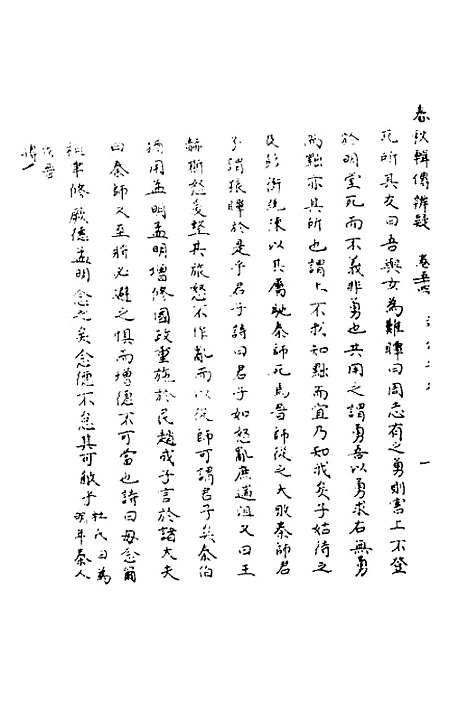 春秋輯傳辨疑 卷三十四 一
死所其友曰吾與女為難曋曰周志有之勇則害上不登
於明堂死而不義非勇也共用之謂勇吾以勇求右無勇
而黜亦其所也謂上不我知黜而宜乃知我矣子姑待之
及彭衙既陳以其屬馳秦師死焉晉師從之大敗秦師君
子謂狼曋於是乎君子詩曰君子如怒亂庶遄沮又曰王
赫斯怒爰整其旅怒不作亂而以從師可謂君子矣秦伯
猶用孟明孟明增修國政重施於民趙成子言於諸大夫
曰秦師又至將必避之懼而增德不可當也詩曰毋念爾
祖聿修厥德孟明念之矣念德不怠其可敵乎 杜氏曰為
明年秦人
伐晉
傳